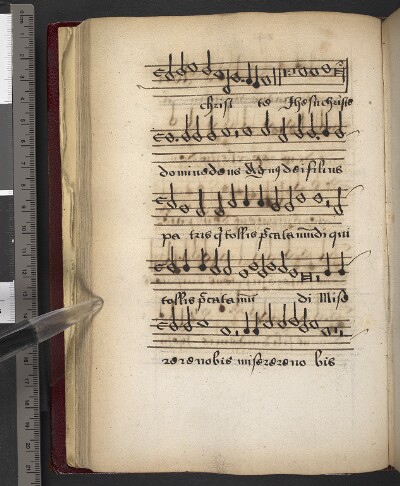 christ te Jhesuchriste
dominedeus Agnus dei filius
pa tris qͥ tollis p̄cata mūdi qui
tollis p̄cata mū di Mise
rere nobis miserere no bis